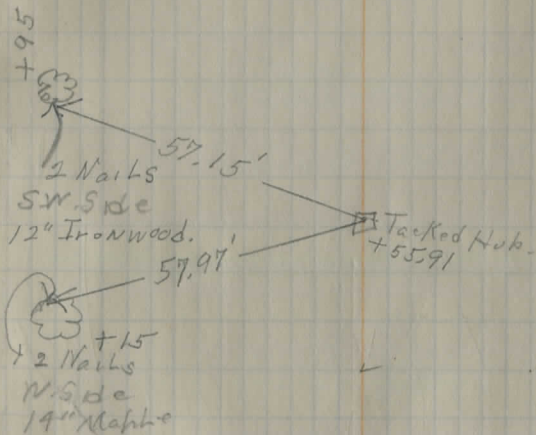 +95
57.15'
2 Nails
SW. Side
12" Ironwood.
Tacked Hub.
+55.91
57.97'
+15
2 Nails
N. Side
14" Maple